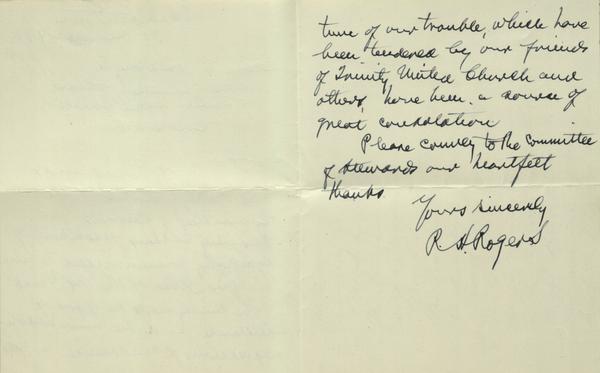 time of our trouble, which have
been tendered by our friends
of Trinity United Church and
others, have been a source of
great consolation
Please convey to the Committee
of Stewards our heartfelt
thanks
Yours sincerely
R. H. Rogers